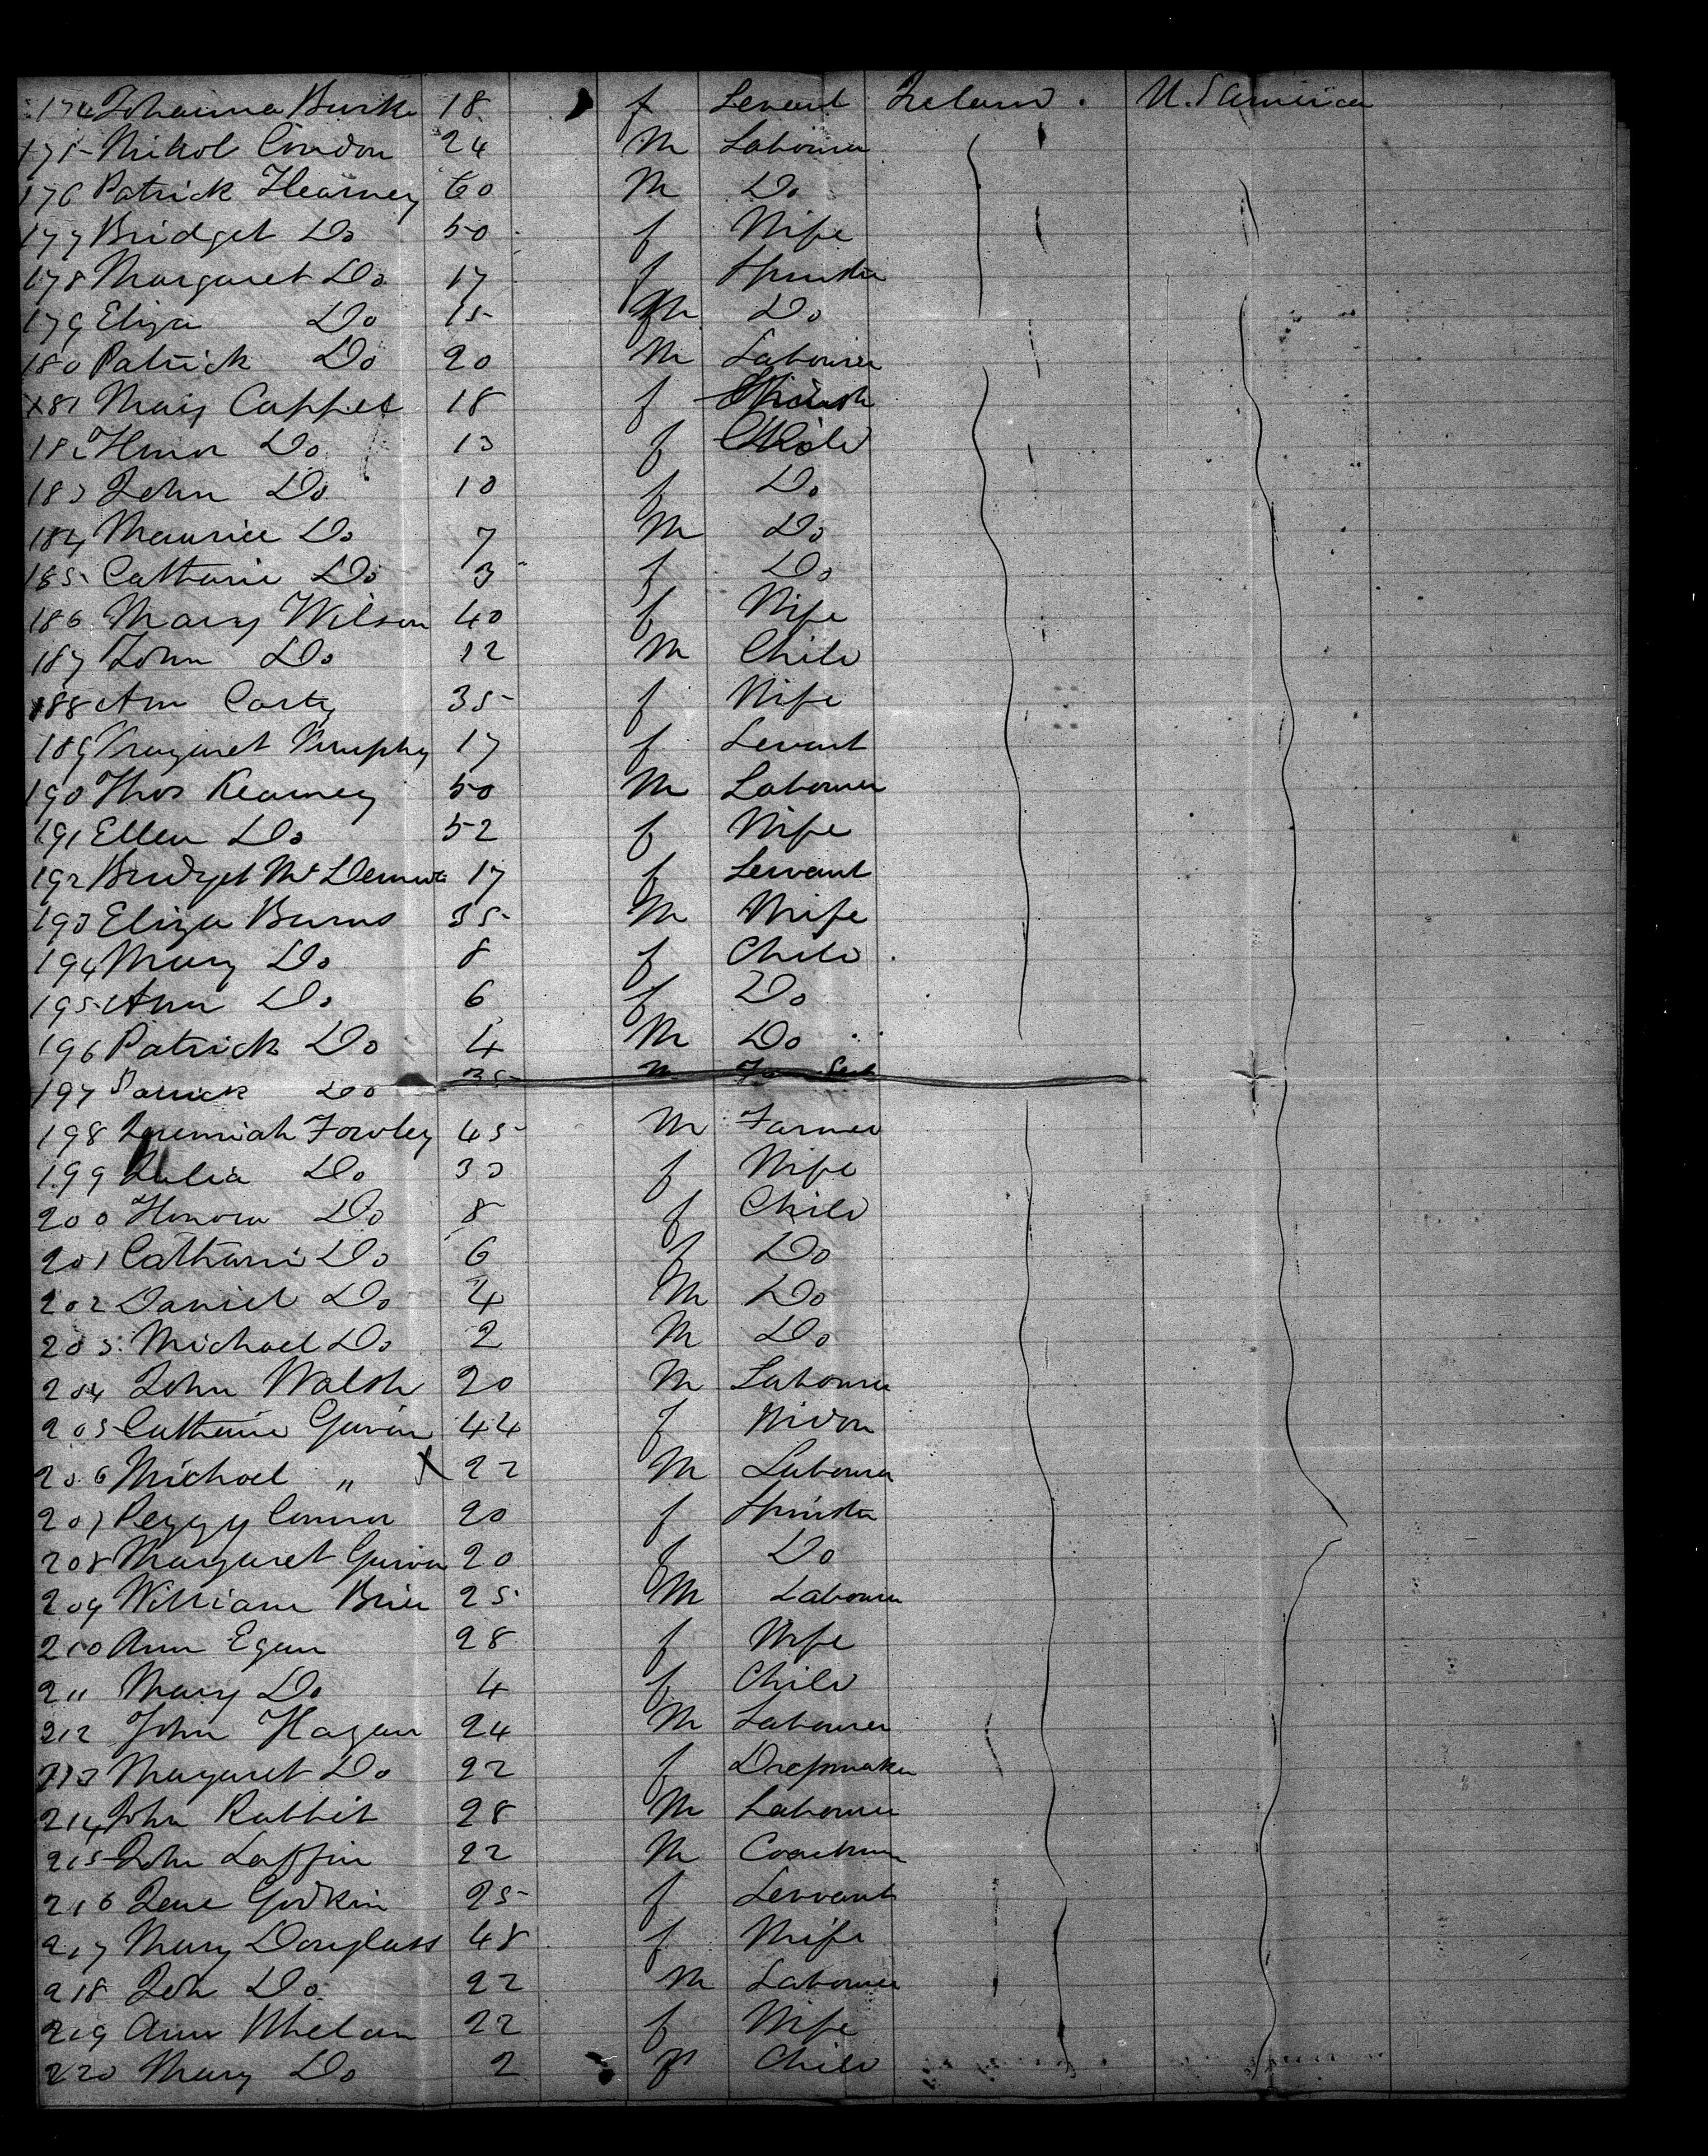 174 Johanna Burke 18 f Servant Ireland. U.S America
175 Nichol Condon 24 M Labourer
176 Patrick Hearney 60 M Do
177 Bridget Do 50 f Wife
178 Margaret Do 17 f Spinster
179 Eliza Do 15 Do
180 Patrick Do 20 M Labourer
181 Mary Cappet 18 f
182 Honor Do 13 f Child
183 John Do 10 f Do
184 Maurice Do 7 M Do
185 Catharine Do 3 f Do
186 Mary Wilson 40 f Wife
187 John Do 12 M Child
188 Ann Carty 35 f Wife
189 Margaret Murphy 17 f Servant
190 Thos Kearney 50 M Labourer
191 Ellen Do 52 f Wife
192 Bridget McDermot 17 f Servant
193 Eliza Burns 35 M Wife
194 Mary Do 8 f Child
195 Ann Do 6 f Do
196 Patrick Do 4 M Do
197 Patrick Do 35 M
198 Jeremiah Fowley 45 M Farmer
199 Julia Do 33 f Wife
200 Honora Do 8 f Child
201 Catharine Do 6 f Do
202 Daniel Do 4 M Do
203 Michael Do 2 M Do
204 John Walsh 20 M Labourer
205 Catharine Gavin 44 f Widow
206 Michael " X 22 M Labourer
207 Peggy Connor 20 f Spinster
208 Margaret Gavin 20 f Do
209 William Brien 25 M Labourer
210 Ann Egan 28 f Wife
211 Mary Do 4 f Child
212 John Hagan 24 M Labourer
213 Margaret Do 22 f Dressmaker
214 John Rabbit 28 M Labourer
215 John Laffin 22 M Coachman
216 Jane Godkin 25 f Servant
217 Mary Douglass 48 f Wife
218 Joh Do 22 M Labourer
219 Ann Whelan 22 f Wife
220 Mary Do 2 f Child